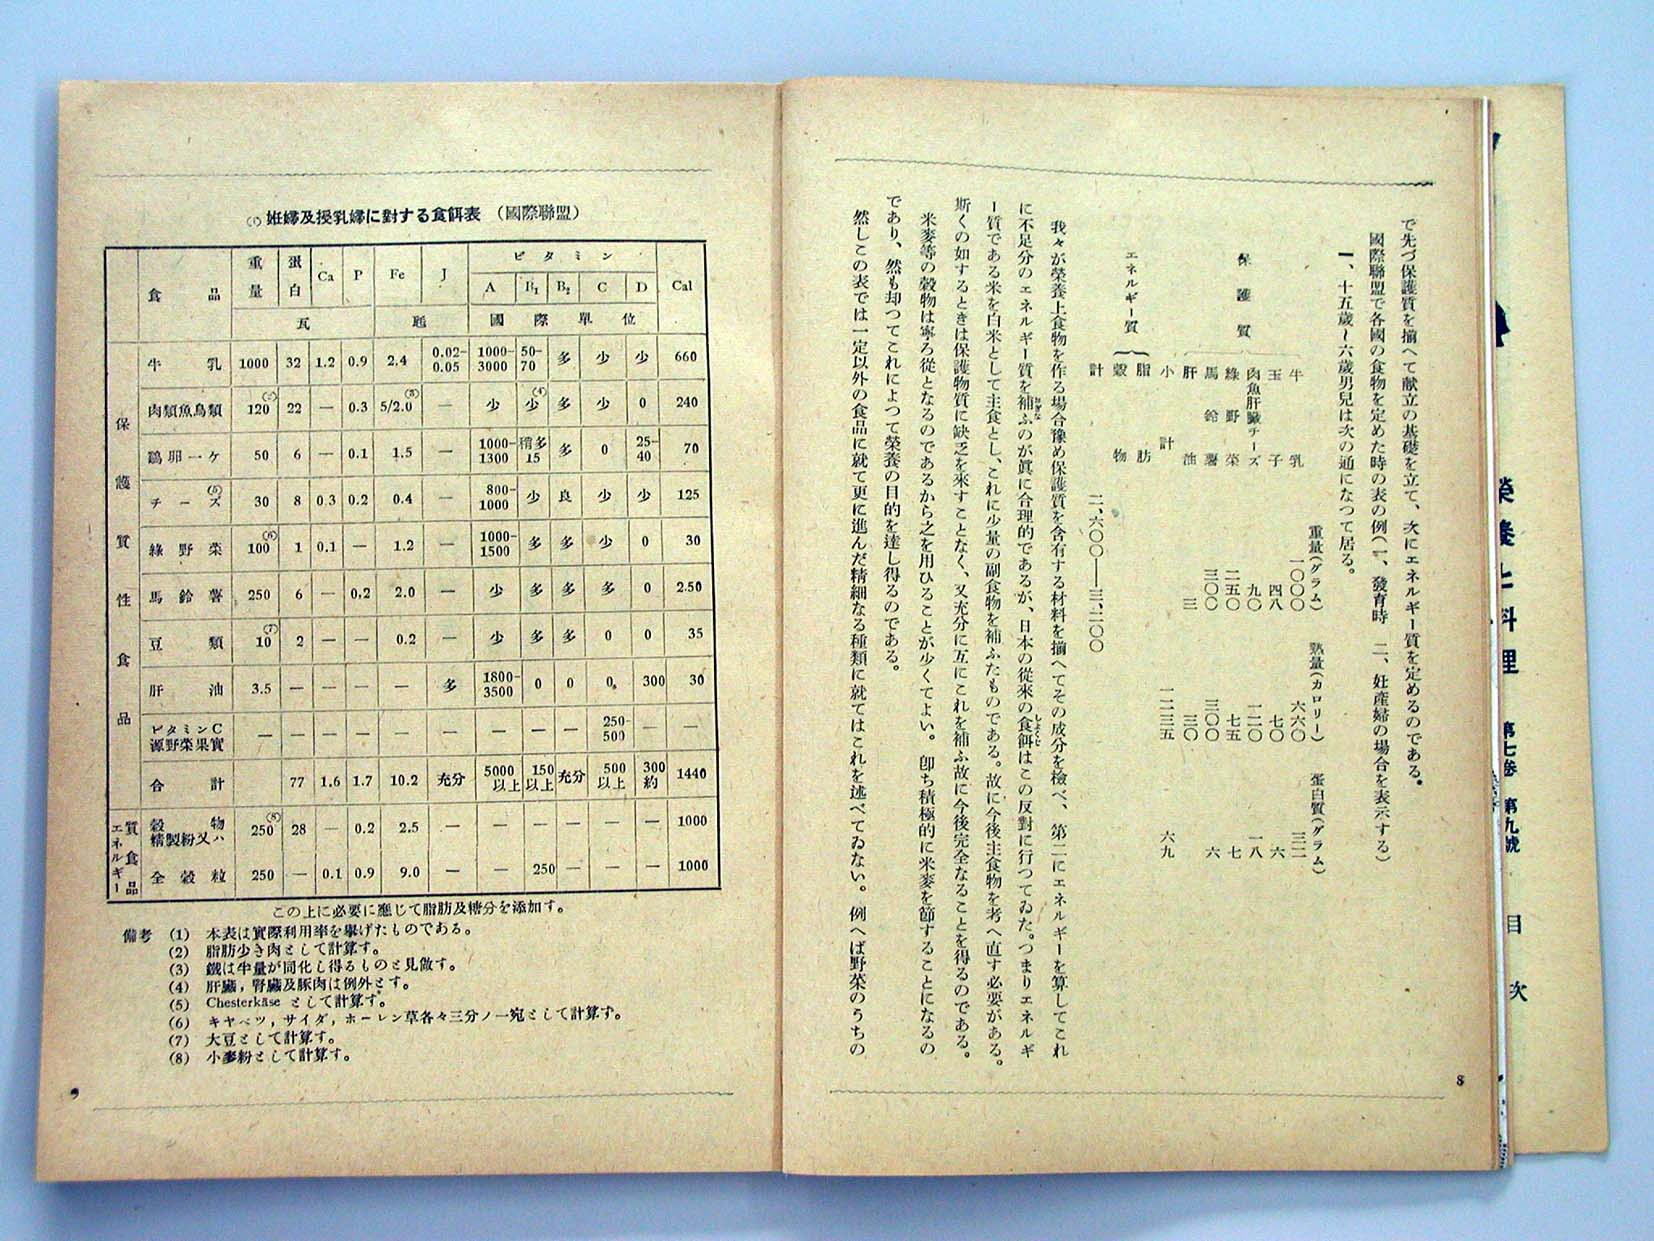 で先づ保護質を揃へて献立の基礎を立て、次にエネルギー質を定めるのである。
國際聯盟で各國の食物を定めた時の表の例(一、發育時 二、妊産婦の場合を表示する)
一、十五歳〜六歳男兒は次の通になつて居る。
重量(グラム) 熱量(カロリー) 蛋白質(グラム)
保護質
牛乳 一〇〇〇 六六〇 三二
玉子 四八 七〇 六
肉魚肝臟チーズ 九〇 一二〇 一八
綠野菜 二五〇 七五 七
馬鈴薯 三〇〇 三〇〇 六
肝油 三 三〇
小計 一二三五 六九
エネルギー質
脂肪
穀物
計 二、六〇〇——三、二〇〇
我々が榮養上食物を作る場合豫め保護質を含有する材料を揃へてその成分を檢べ、第二にエネルギーを算してこれ
に不足分のエネルギー質を補ふのが眞に合理的であるが、日本の從來の食餌はこの反對に行つてゐた。つまりエネルギ
ー質である米を白米として主食とし、これに少量の副食物を補ふたものである。故に今後主食物を考へ直す必要がある。
斯くの如するときは保護物質に缺乏を來すことなく、又充分に互にこれを補ふ故に今後完全なることを得るのである。
米麥等の穀物は寧ろ從となるのであるから之を用ひることが少くてよい。卽ち積極的に米麥を節することになるの
であり、然も却つてこれによつて榮養の目的を達し得るのである。
然しこの表では一定以外の食品に就て更に進んだ精細なる種類に就てはこれを述べてゐない。例へば野菜のうちの
8
榮養と料理 第七卷 第九號 目次
(1) 姙婦及授乳婦に對する食餌表 (國際聯盟)
食品 重量 蛋白 Ca P Fe J ビタミン Cal
A B1 B2 C D
瓦 瓱 國際單位
保護質性食品
牛乳 1000 32 1.2 0.9 2.4 0.02-0.05 1000-3000 50-70 多 少 少 660
肉類魚鳥類 120(2) 22 — 0.3 5/2.0(3) — 少 少(4) 多 少 0 240
鷄卵一ケ 50 6 — 0.1 1.5 — 1000-1300 稍多15 多 0 25-40 70
チーズ(5) 30 8 0.3 0.2 0.4 — 800-1000 少 良 少 少 125
綠野菜 100(6) 1 0.1 — 1.2 — 1000-1500 多 多 少 0 30
馬鈴薯 250 6 — 0,2 2.0 — 少 多 多 多 0 2.50
豆類 10(7) 2 — — 0.2 — 少 多 多 0 0 35
肝油 3.5 — — — — 多 1800-3500 0 0 0 300 30
ビタミンC源野菜果實 — — — — — — — — — 250-500 — —
合計 77 1.6 1.7 10.2 充分 5000以上 150以上 充分 500以上 300約 1440
エネルギー質食品
穀物精製粉又ハ 250(8) 28 — 0.2 2.5 — — — — — — 1000
全穀粒 250 — 0.1 0.9 9.0 — — 250 — — — 1000
この上に必要に應じて脂肪及糖分を添加す。
備考 (1) 本表は實際利用率を擧げたものである。
(2) 脂肪少き肉として計算す。
(3) 鐵は半量が同化し得るものと見做す。
(4) 肝臟,腎臟及豚肉は例外とす。
(5) Chesterkäse として計算す。
(6) キヤベツ,サイダ,ホーレン草各々三分ノ一宛として計算す。
(7) 大豆として計算す。
(8) 小麥粉として計算す。
9